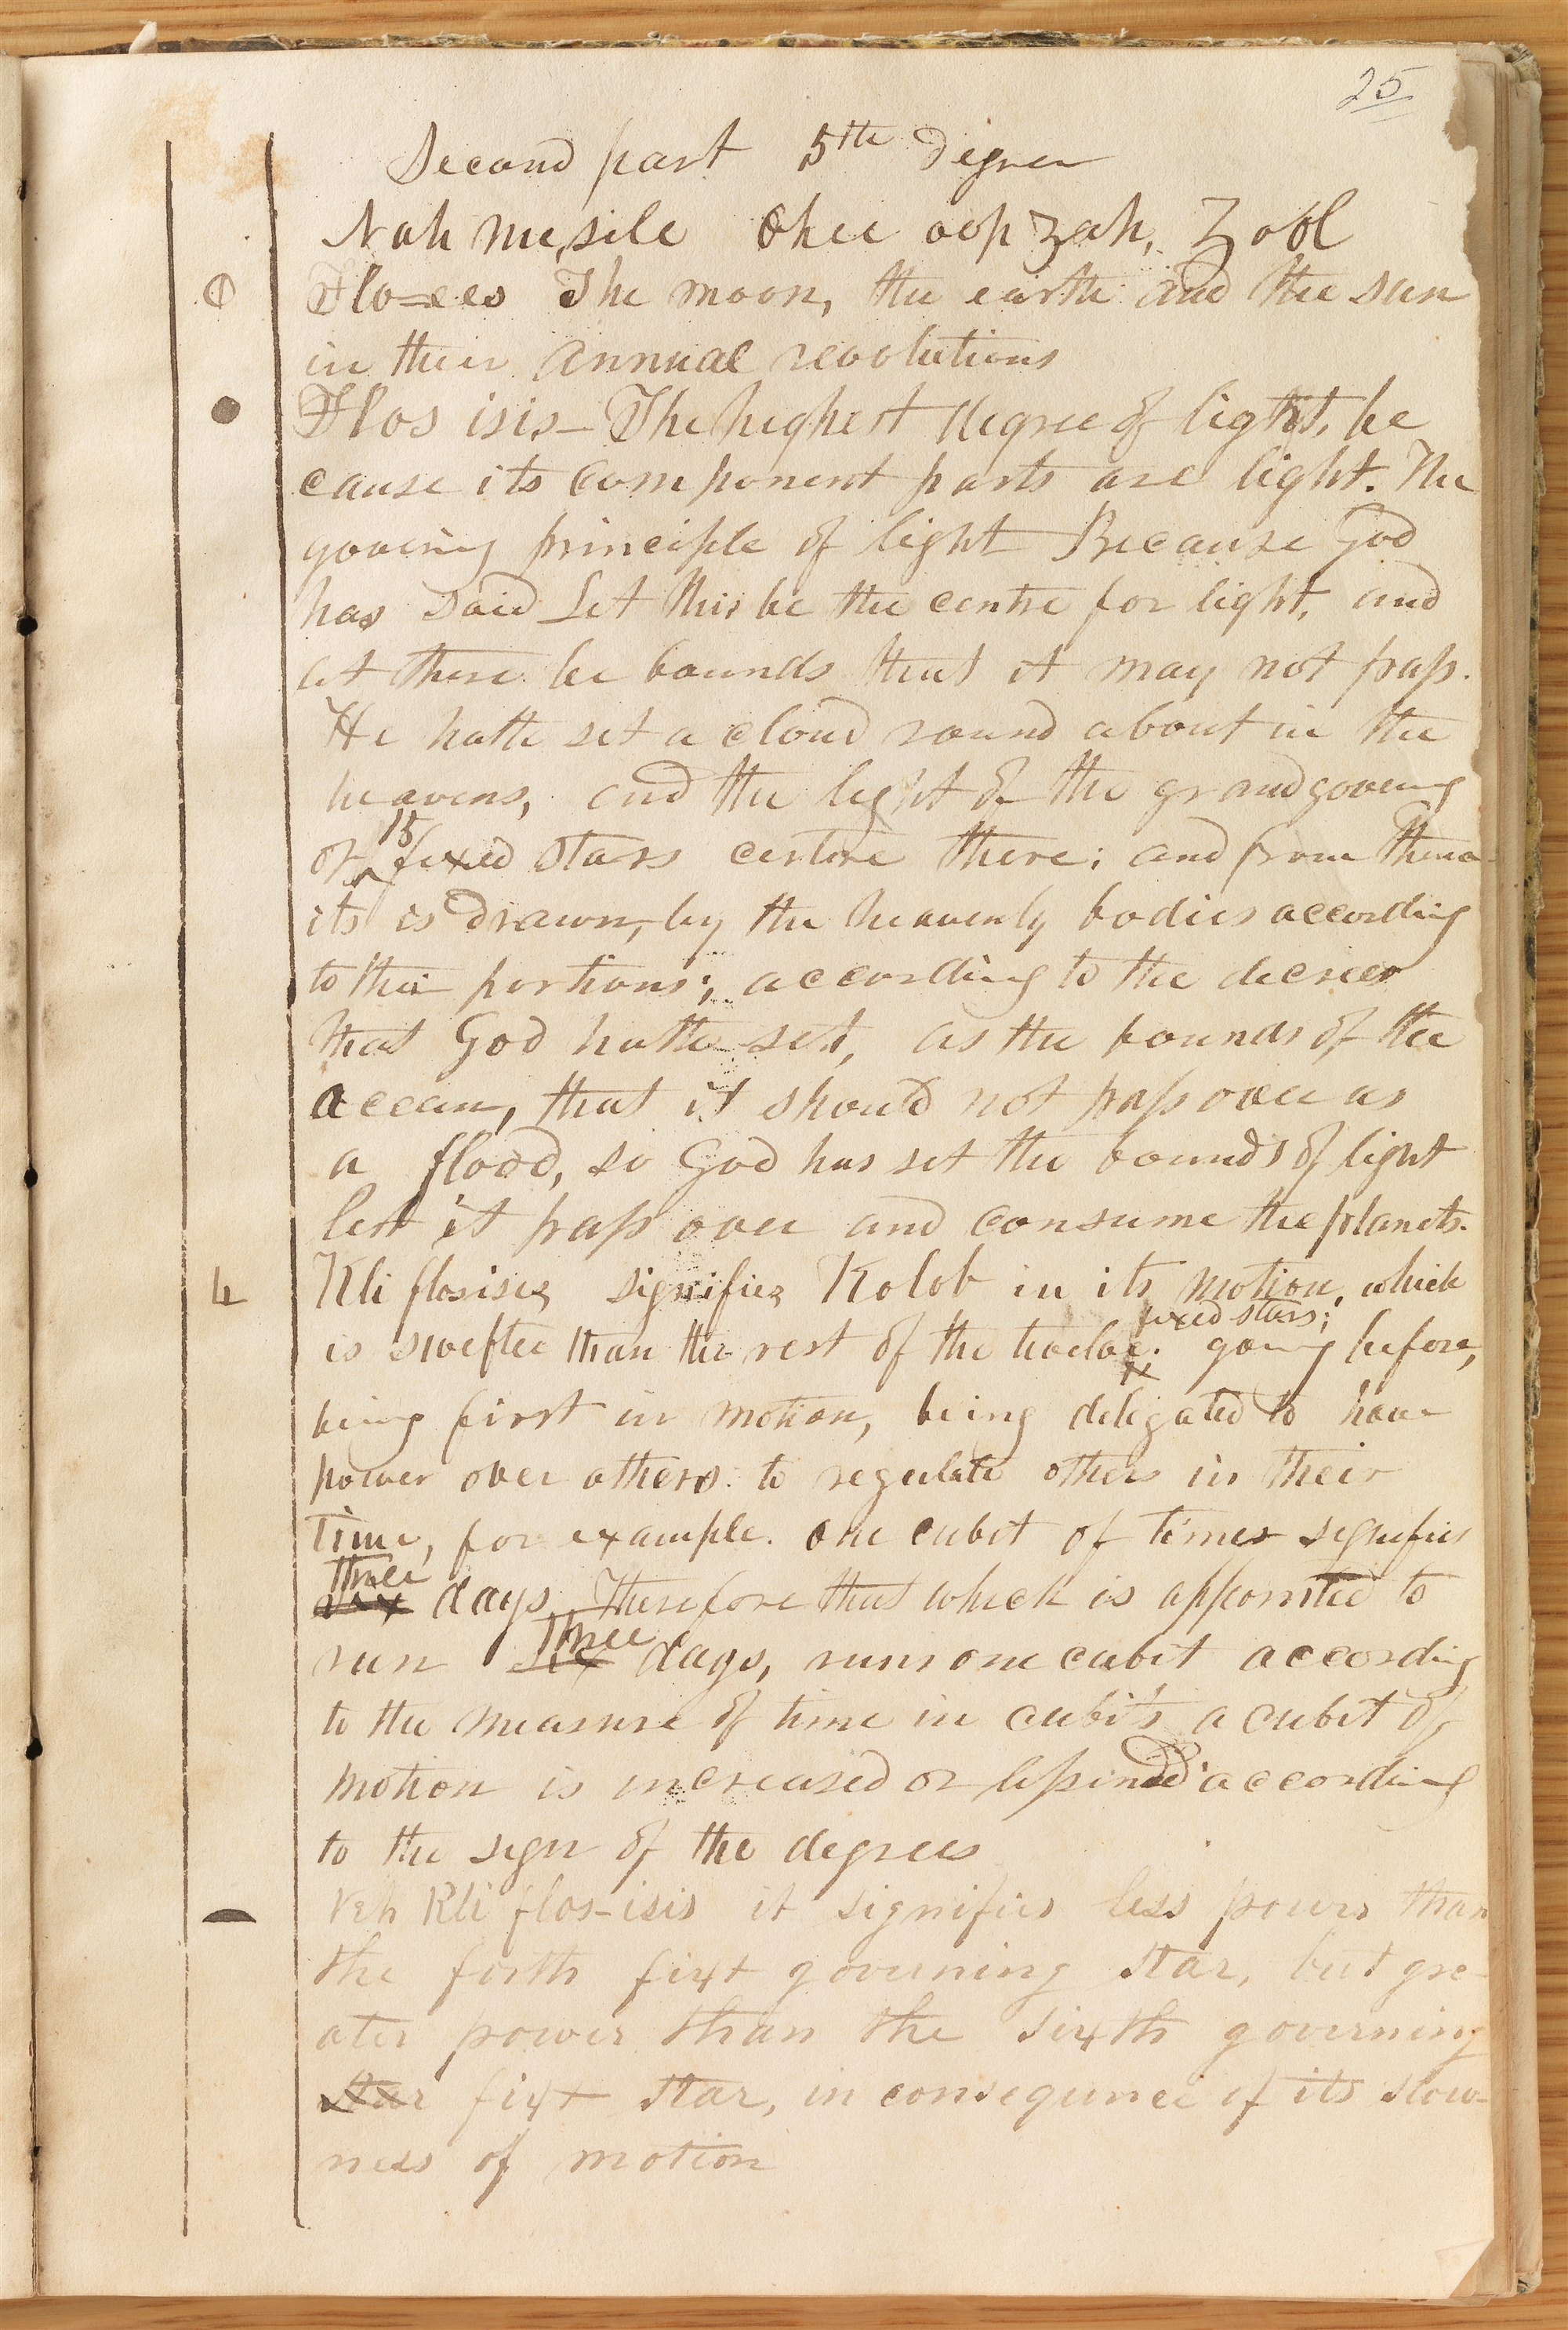 25
Second part 5th Degree
Nah mesile ohee oop zah, Zool
Flo=ees The moon, the earth and the sun
in their annual revolutions
Flos isis— The highest degree of light, be
cause its component parts are light. The
governing principle of light Because God
has said Let this be the centre for light, and
let there be bounds that it may not pass.
He hath set a cloud round about in the
heavens, and the light of the grand governing
of 15 fixed stars centre there; and from there
its is drawn, by the heavenly bodies according
to their portions; according to the decrees
that God hath set, as the bounds of the
ocean, that it should not pass over as
a flood, so God has set the bounds of light
lest it pass over and consume the planets.
Kli flosisis signifies Kolob in its motion, which
is swifter than the rest of the twelve fixed stars; going before,
being first in motion, being delegated to have
power over others to regulate others in their
time, for example. one cubit of times signifies
six three days. Therefore that which is appointed to
run six three days, runs one cubit according
to the measure of time in cubits a cubit of
motion is increased or lessined according
to the sign of the degrees
Veh Kli flos-isis it signifies less power than
the forth fixt governing star, but gre-
ater power than the sixth governing
star fixt star, in consequence of its slow-
ness of motion